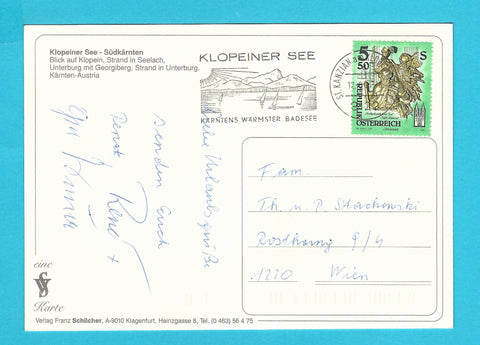 Klopeiner See - Südkärnten
Blick auf Klopein, Strand in Seelach,
Unterburg mit Georgiberg, Strand in Unterburg.
Kärnten-Austria
KLOPEINER SEE
KÄRNTENS WÄRMSTER BADESEE
ST. KANZIAN
5 S
50
REPUBLIK
ÖSTERREICH
Liebe Urlaubsgrüße
senden Euch
Renate René +
Opa
Fam.
Th. u. P. Stachowski
9/4
1220 Wien
eine
VS
Karte
Verlag Franz Schilcher, A-9010 Klagenfurt, Heinzgasse 8, Tel. (0 463) 56 4 75